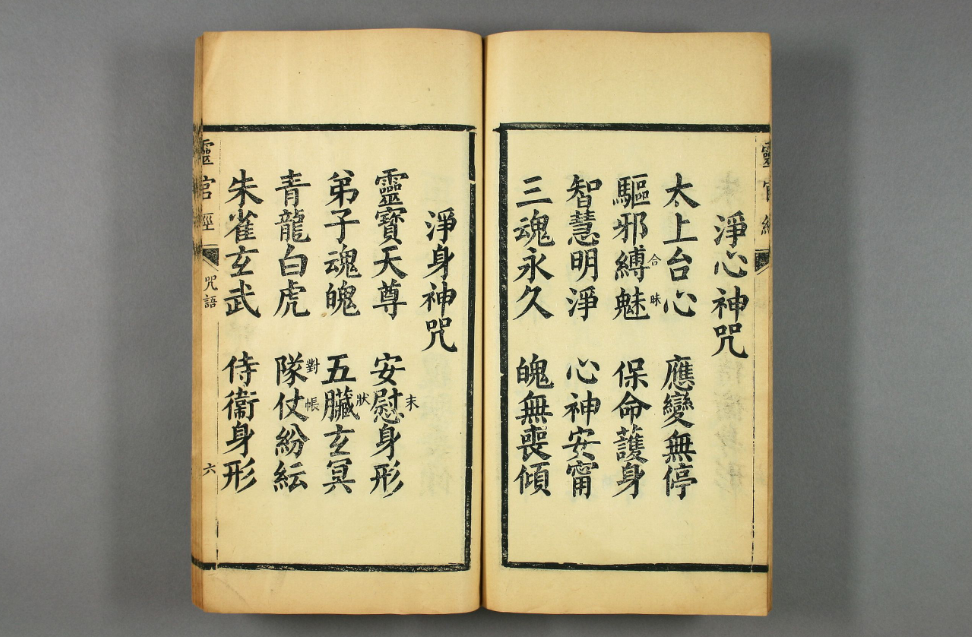 淨心神咒
太上台心 應變無停
驅邪縛合魅昧 保命護身
智慧明淨 心神安甯
三魂永久 魄無喪傾
淨身神咒
靈寶天尊 安慰末身形
弟子魂魄 五臟狀玄冥
青龍白虎 隊對仗帳紛紜
朱雀玄武 侍衞身形
靈官經
咒語
六